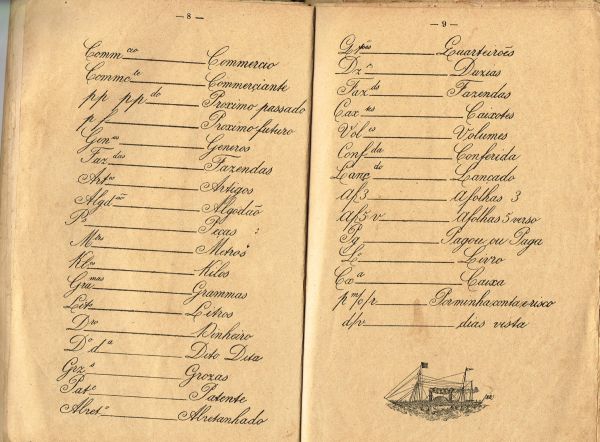 — 8 —
Commcio Commercio
Commcte Commerciante
pp ppdo Proximo passado
p f Proximo futuro
Genos Generos
Fazdas Fazendas
Artos Artigos
Algdão Algodão
Ps Peças :
Mtros Metros
Klos Kilos
Gramas Grammas
Lits Litros
Dro Dinheiro
Do da Dito Dita
Grzs Grozas
Pate Patente
Abreto Abretanhado
— 9 —
Qrtões Quarteirões
Dzs Duzias
Fazds Fazendas
Caxtes Caixotes
Voles Volumes
Confda Conferida
Lançdo Lancado
Af 3 Afolhas 3
Af 5 v Afolhas 5 verso
Pg Pagou, ou Paga
Lo Livro
Cxa Caixa
p m/c/r Por minha conta e risco
d/v dias vista